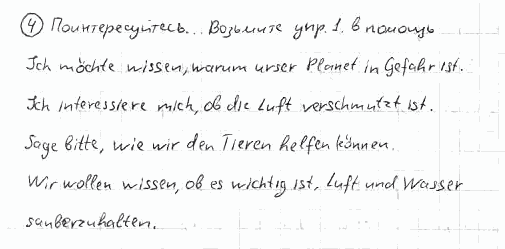 ④ Поинтересуйтесь... Возьмите упр. 1. в помощь
Ich möchte wissen, warum unser Planet in Gefahr ist.
Ich interessiere mich, ob die Luft verschmutzt ist.
Sage bitte, wie wir den Tieren helfen können.
Wir wollen wissen, ob es wichtig ist, Luft und Wasser
sauberzuhalten.